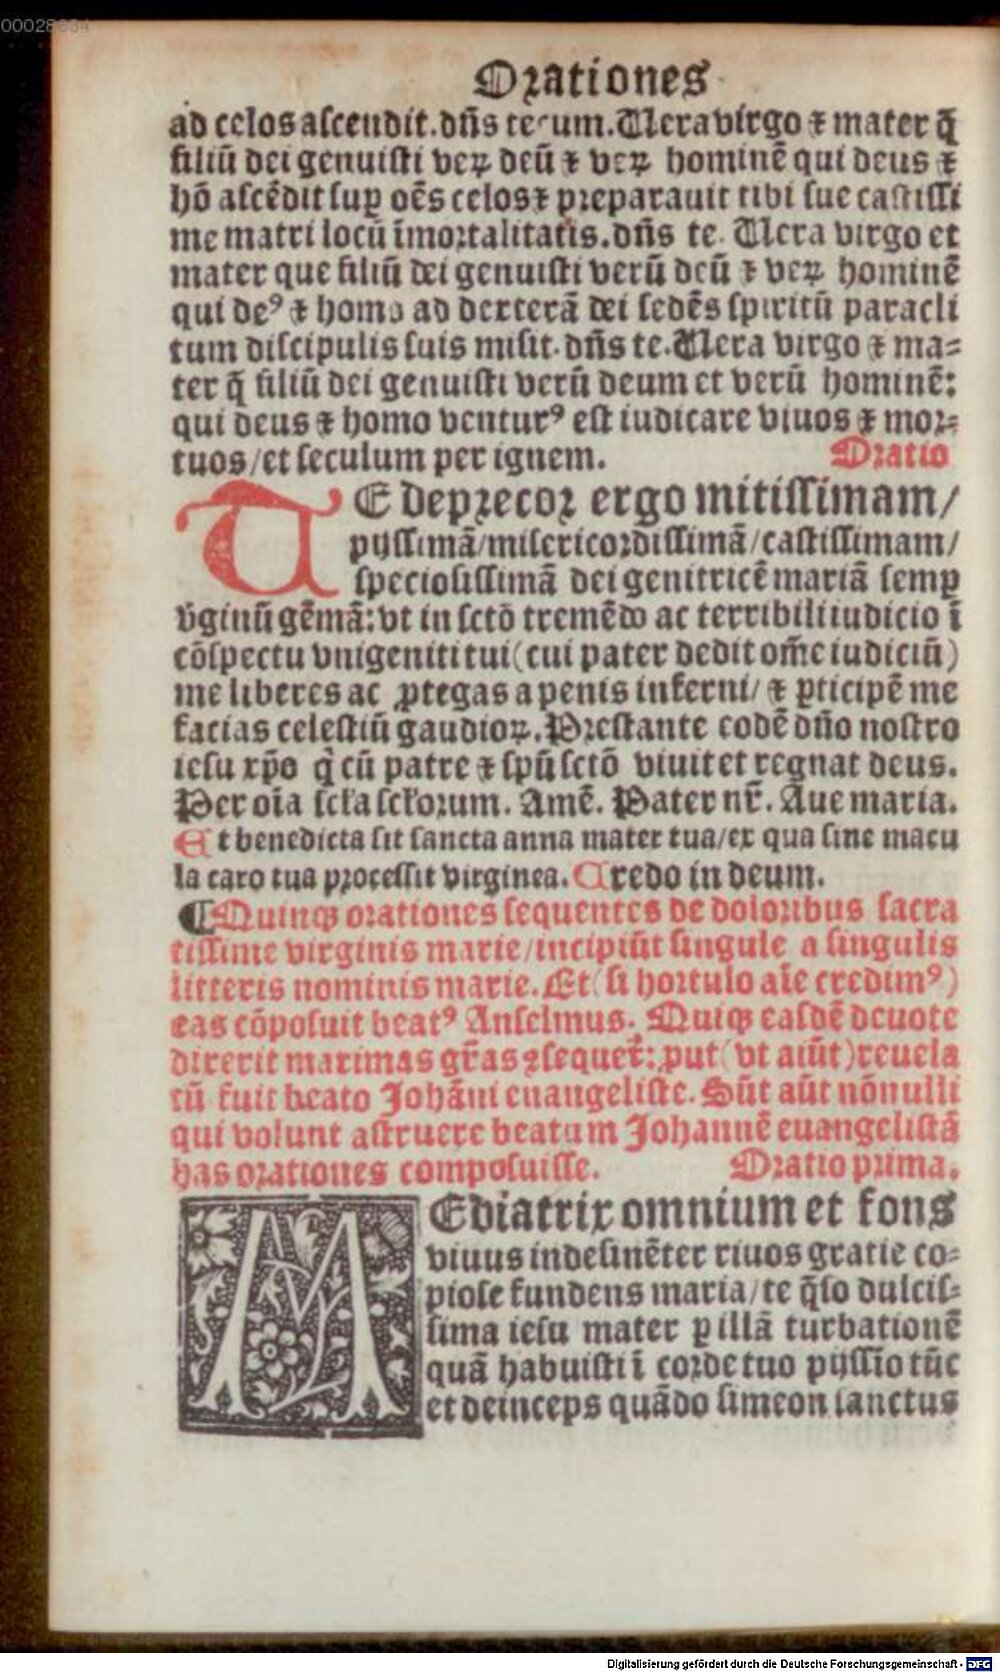 00028664
Orationes
ad celos ascendit. dn̄s tecum. Uera virgo ⁊ mater q̄
filiū dei genuisti veꝝ deū ⁊ veꝝ hominē qui deus ⁊
hō ascēdit suꝑ oēs celos ⁊ preparauit tibi sue castissi
me matri locū īmortalitatis. dn̄s te. Uera virgo et
mater que filiū dei genuisti verū deū ⁊ veꝝ hominē
qui deꝰ ⁊ homo ad dexterā dei sedēs spiritū paracli
tum discipulis suis misit. dn̄s te. Uera virgo ⁊ ma-
ter q̄ filiū dei genuisti verū deum et verū hominē:
qui deus ⁊ homo venturꝰ est iudicare viuos ⁊ mor-
tuos/et seculum per ignem. Oratio
TE deprecor ergo mitissimam/
pijssimā/misericordissimā/castissimam/
speciosissimā dei genitricē mariā semꝑ
v̄ginū gēmā: vt in sctō tremēdo ac terribili iudicio ī
cōspectu vnigeniti tui (cui pater dedit om̄e iudiciū)
me liberes ac ꝓtegas a penis inferni/ ⁊ ꝑticipē me
facias celestiū gaudioꝝ. Prestante eodē dn̄o nostro
iesu xp̄o q̇ cū patre ⁊ spū sctō viuit et regnat deus.
Per oīa scła scłorum. Amē. Pater nr̄. Aue maria.
Et benedicta sit sancta anna mater tua/ex qua sine macu
la caro tua processit virginea. Credo in deum.
¶ Quinqꝫ orationes sequentes de doloribus sacra
tissime virginis marie/incipiūt singule a singulis
litteris nominis marie. Et (si hortulo aīe credimꝰ)
eas cōposuit beatꝰ Anselmus. Quiqꝫ easdē deuote
dixerit maximas gr̄as ꝯsequet̄: ꝓut (vt aiūt) reuela
tū fuit beato Johāni euangeliste. Sūt aūt nōnulli
qui volunt astruere beatum Johannē euangelistā
has orationes composuisse. Oratio prima.
MEdiatrix omnium et fons
viuus indesinēter riuos gratie co-
piose fundens maria/te q̄so dulcis-
sima iesu mater ꝑ illā turbationē
quā habuisti ī corde tuo pijssīo tūc
et deinceps quādo simeon sanctus
Digitalisierung gefördert durch die Deutsche Forschungsgemeinschaft - DFG